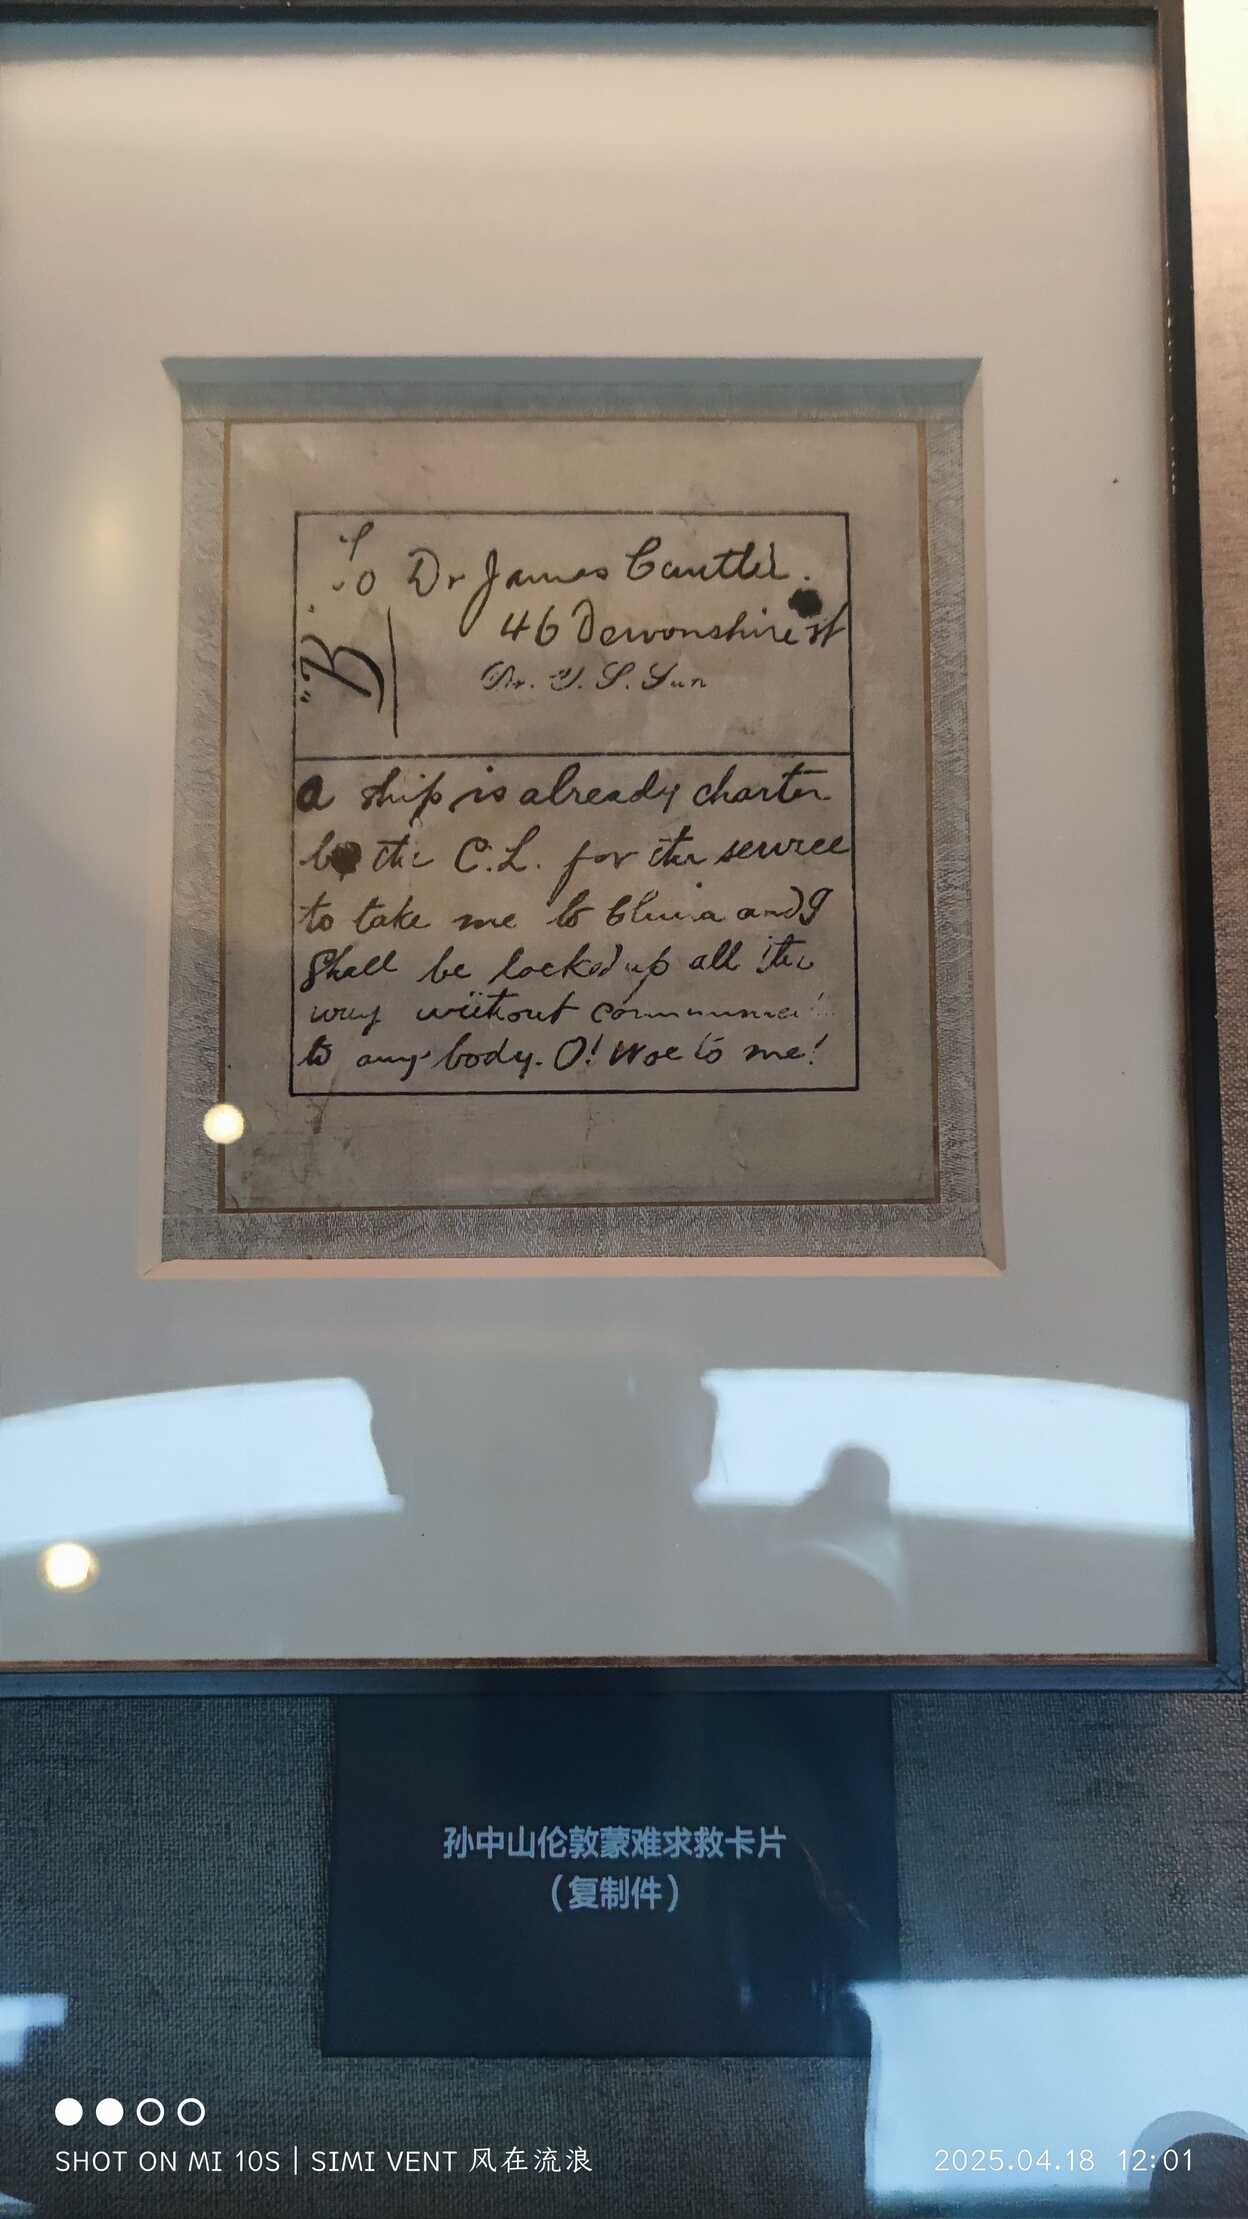 To Dr James Cantlie.
46 Devonshire st
"B
Dr. Y. S. Sun
a ship is already charter
by the C.L. for the service
to take me to China and I
Shall be locked up all the
way without
to any body. O! Woe to me!
孙中山伦敦蒙难求救卡片
（复制件）
SHOT ON MI 10S | SIMI VENT 风在流浪
2025.04.18 12:01